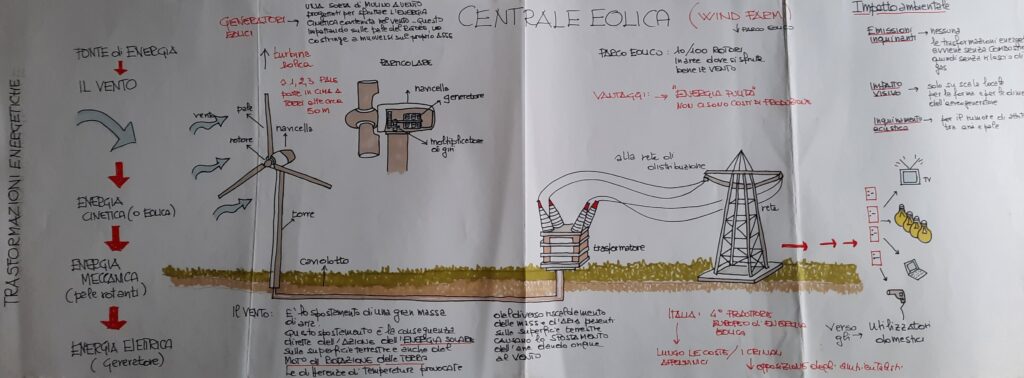 TRASFORMAZIONI ENERGETICHE
FONTE di ENERGIA
IL VENTO
ENERGIA
CINETICA (O EOLICA)
ENERGIA
MECCANICA
(pale rotanti)
ENERGIA ELETTRICA
(Generatore)
GENERATORI
EOLICI
UNA SORTA DI MULINO A VENTO
progettati per sfruttare l'ENERGIA
CINETICA contenuta nel VENTO. Questo
impattando sulle pale del
costringe a muoversi sul proprio asse
turbina
eolica
a 1, 2, 3 PALE
poste in CIMA A
TORRI alte circa
50 m
vento
pale
rotore
navicella
torre
cavidotto
PARTICOLARE
navicella
generatore
moltiplicatore
di giri
CENTRALE EOLICA (WIND FARM)
PARCO EOLICO
PARCO EOLICO: 10/100 ROTORI
in aree dove si sfrutta
bene il VENTO
VANTAGGI: "ENERGIA PULITA"
NON CI SONO COSTI DI PRODUZIONE
alla rete di
distribuzione
trasformatore
rete
IL VENTO:
E' lo spostamento di una gran massa
di aria.
Questo spostamento è la conseguenza
diretta dell'AZIONE dell'ENERGIA SOLARE
sulla superficie terrestre e anche del
MOTO di ROTAZIONE della TERRA
Le differenze di Temperatura provocate
dal diverso riscaldamento
delle masse d'ARIA presenti
sulla superficie terrestre
CAUSANO lo SPOSTAMENTO
dell'aria dando origine
al VENTO
ITALIA: 4°
EUROPEO DI ENERGIA
EOLICA
LUNGO LE COSTE / I CRINALI
APPENNINICI
opposizione degli ambientalisti
Impatto ambientale
Emissioni
inquinanti
nessuna
le trasformazioni
avviene senza
quindi senza rilascio di
gas
IMPATTO
VISIVO
solo su scala locale
per la forma e per le
dell'aerogeneratore
Inquinamento
acustico
per il rumore di
tra aria e pale
TV
Verso
gli
Utilizzatori
domestici